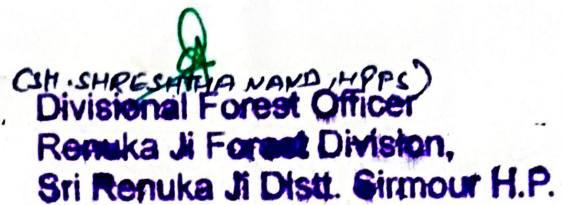 (SH. SHRESHTHA NAND, HPFS)
Divisional Forest Officer
Renuka Ji Forest Division,
Sri Renuka Ji Distt. Sirmour H.P.